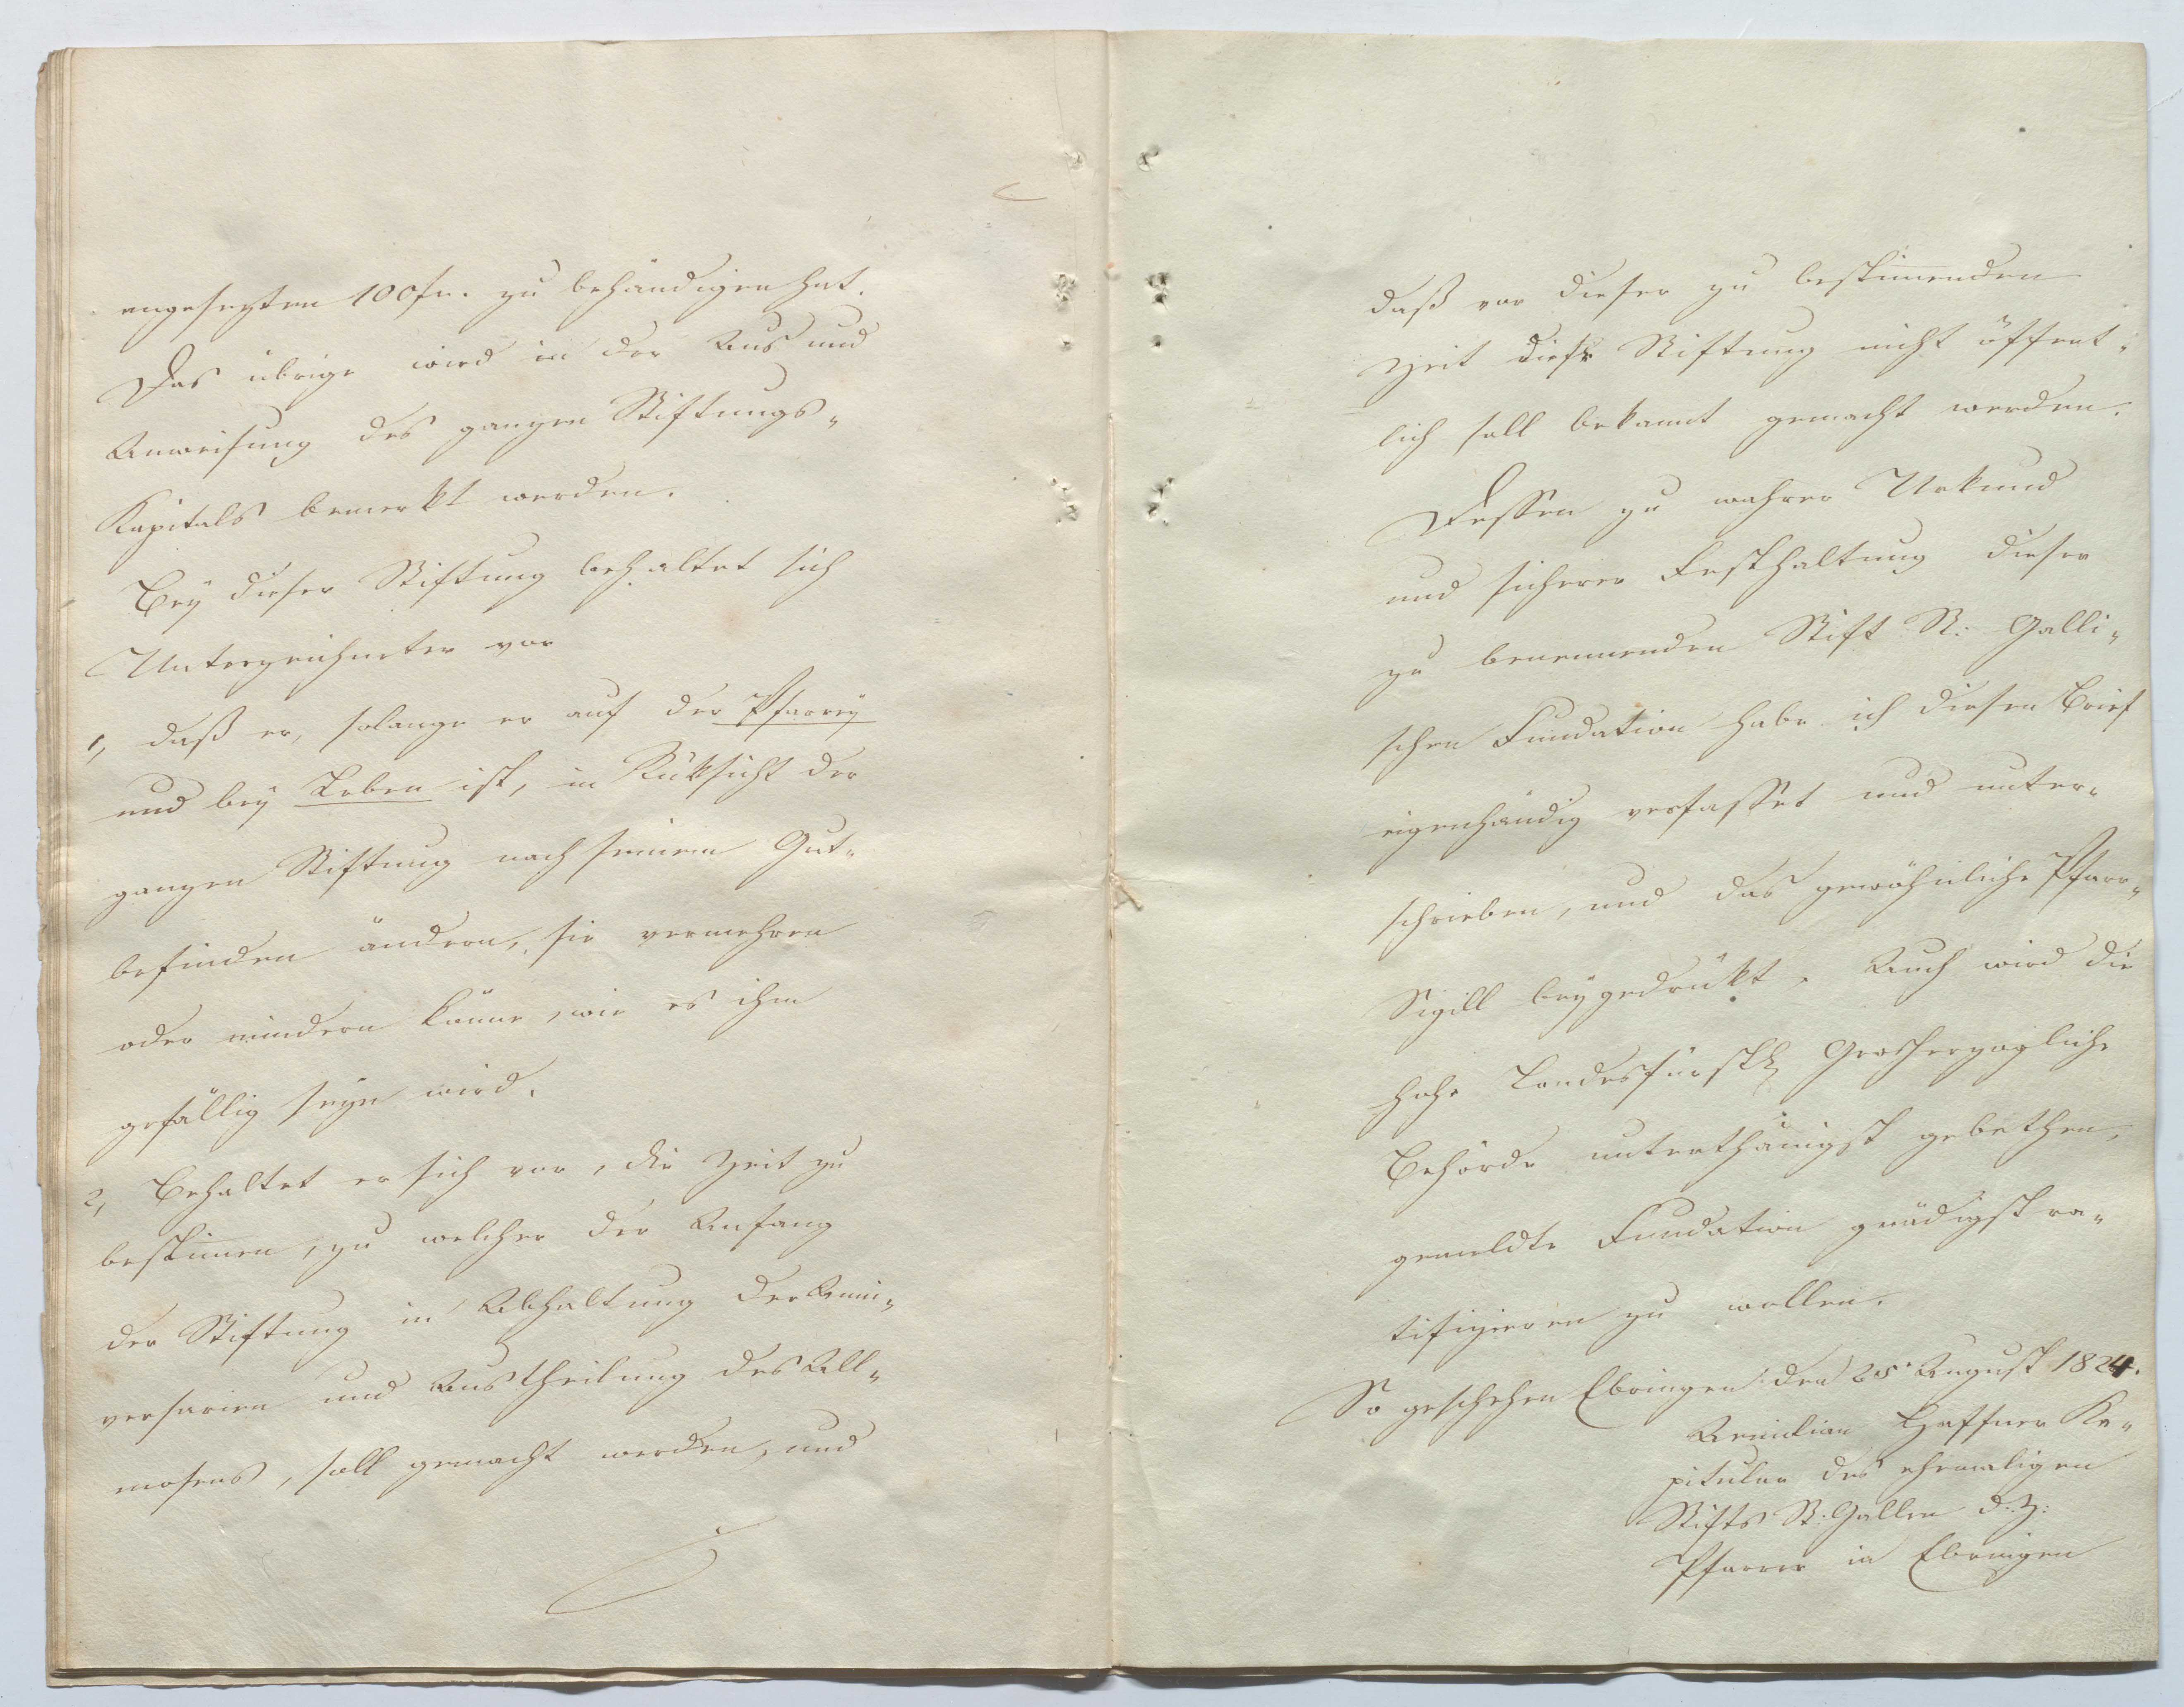 angesezten 100 fr. zu behändigen hat.
Das übrige wird in der Aus und
Anweisung des ganzen Stiftungs„
Kapitals bemerkt werden.
Bey dieser Stiftung behaltet sich
Unterzeichneter vor
1, daß er, solange er auf der Pfarrey
und bey Leben ist, in Rüksicht der
ganzen Stiftung nach seinem Gut„
befinden ändern, sie vermehren
oder mindern könne, wie es ihm
gefällig seyn wird.
2, Behaltet er sich vor, die Zeit zu
bestim̅en, zu welcher der Anfang
der Stiftung in Abhaltung der Anni„
versarien und Austheilung des All„
mosens, soll gemacht werden, und
daß vor dieser zu bestim̅enden
Zeit diese Stiftung nicht öffent„
lich soll bekannt gemacht werden.
Dessen zu wahrer Urkund
und sicherer Festhaltung dieser
zu benennenden Stift St: Galli„
schen Fundation habe ich diesen Brief
eigenhändig verfasset und unter„
schrieben, und das gewöhnliche Pfarr„
Sigill beygedrükt. Auch wird die
hohe Landesfürstl. Grosherzogliche
Behörde unterthänigst gebethen,
gemeldte Fundation gnädigst ra„
tifizieren zu wollen.
So geschehen Ebringen den 25. August 1824.
Aemilian Haffner Ka„
pitular des ehemaligen
Stifts St: Gallen d: Z:
Pfarrer in Ebringen